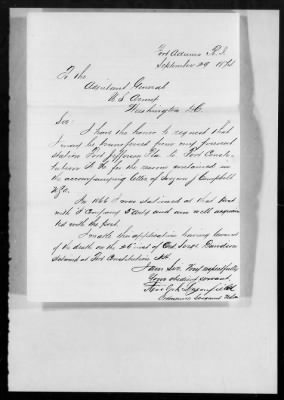 Fort Adams R.I.
September 29 187
To the
Assistant General
U.S. Army
Washington D.C.
Sir:
I have the honor to request that
I may be transferred from my present
station Fort Jefferson Fla to Fort Consti-
tution N.H. for the reasons contained in
the accompanying letter of Surgeon Campbell
U.S.A.
In 1866 I was stationed at that Post
with Company Arty and am well acquain-
ted with the post.
I make this application having learned
of the death on the 26 inst of Ord Sergt Davidson
stationed at Fort Constitution N.H.
I am Sir Very respectfully
Your obedient servant,
Ordnance Sergeant U.S.A.